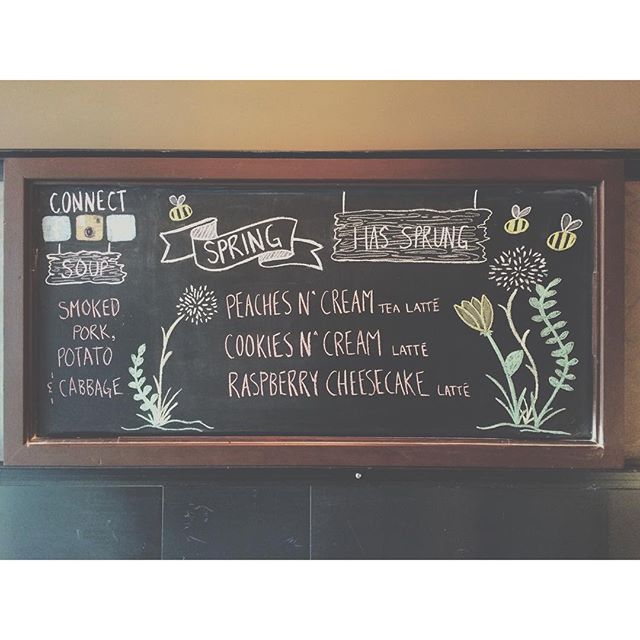 CONNECT
SOUP
SMOKED
PORK,
POTATO
& CABBAGE
SPRING
HAS SPRUNG
PEACHES N' CREAM TEA LATTÉ
COOKIES N' CREAM LATTÉ
RASPBERRY CHEESECAKE LATTÉ